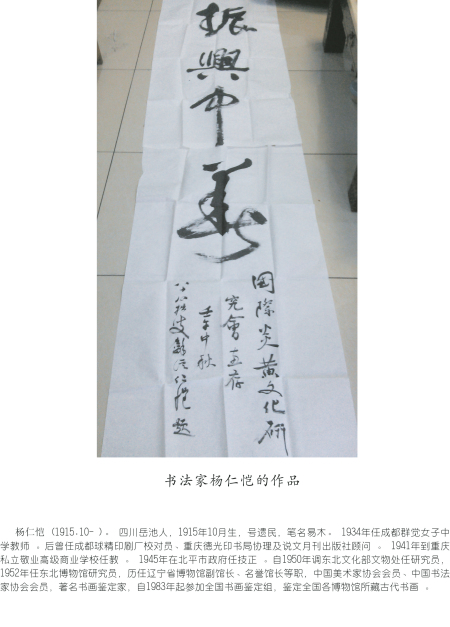 振興中華
国际炎黄文化研
究會惠存
壬午中秋
仁恺題
书法家杨仁恺的作品
杨仁恺（1915.10- ）。 四川岳池人，1915年10月生，号遗民，笔名易木。 1934年任成都群觉女子中
学教师 。后曾任成都球精印刷厂校对员、重庆德光印书局协理及说文月刊出版社顾问 。 1941年到重庆
私立敬业高级商业学校任教 。 1945年在北平市政府任技正 。自1950年调东北文化部文物处任研究员，
1952年任东北博物馆研究员，历任辽宁省博物馆副馆长、名誉馆长等职，中国美术家协会会员、中国书法
家协会会员，著名书画鉴定家，自1983年起参加全国书画鉴定组，鉴定全国各博物馆所藏古代书画 。